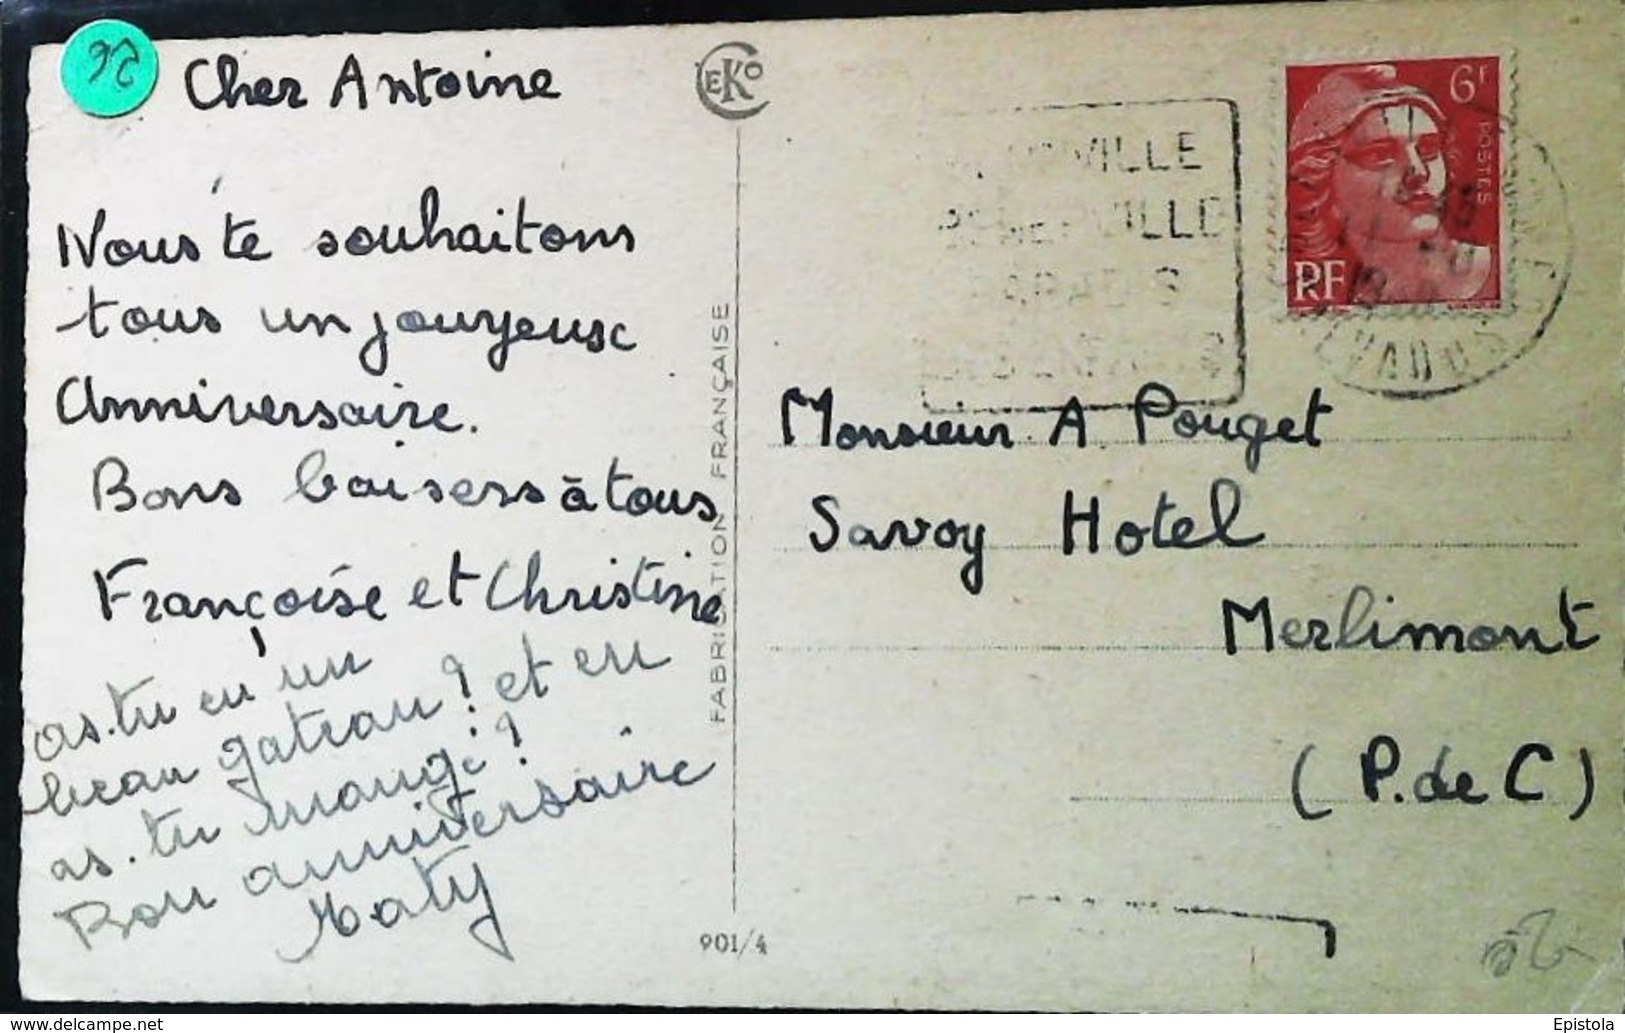 Cher Antoine
Nous te souhaitons
tous un jouyeux
Anniversaire.
Bons baisers à tous
Françoise et Christine
as-tu eu un
beau gateau? et en
as-tu mangé?
Bon anniversaire
Katy
EKO
FABRICATION FRANÇAISE
901/4
VILLE
VILLE
PARADIS
6F
POSTES
RF
CALVADOS
Monsieur A Pouget
Savoy Hotel
Merlimont
(P. de C)
www.delcampe.net
Epistola